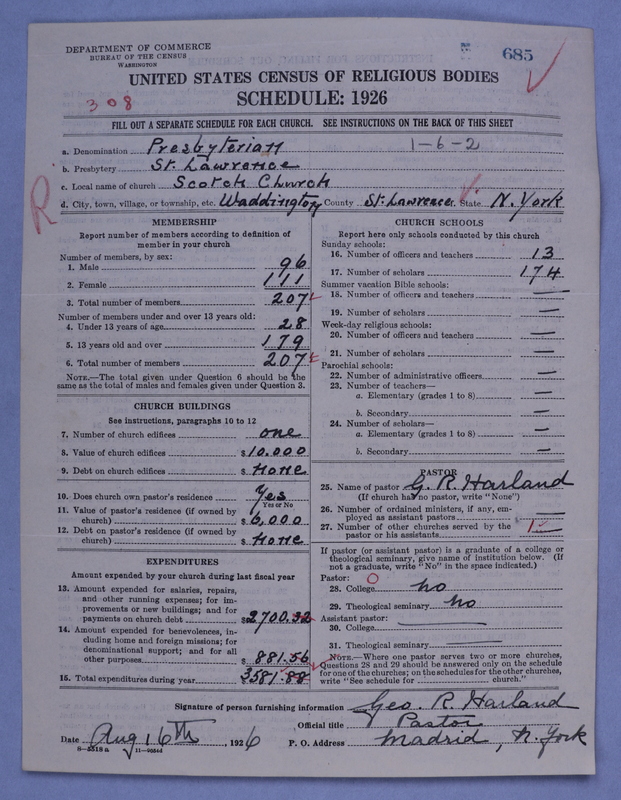 DEPARTMENT OF COMMERCE
BUREAU OF THE CENSUS
WASHINGTON
685
UNITED STATES CENSUS OF RELIGIOUS BODIES
308
SCHEDULE: 1926
FILL OUT A SEPARATE SCHEDULE FOR EACH CHURCH. SEE INSTRUCTIONS ON THE BACK OF THIS SHEET
a. Denomination Presbyterian 1-6-2
b. Presbytery St. Lawrence
c. Local name of church Scotch Church
R
d. City, town, village, or township, etc. Waddington County St. Lawrence State N. York
MEMBERSHIP
Report number of members according to definition of
member in your church
Number of members, by sex:
1. Male 96
2. Female 111
3. Total number of members 207
Number of members under and over 13 years old:
4. Under 13 years of age 28
5. 13 years old and over 179
6. Total number of members 207
NOTE.—The total given under Question 6 should be the
same as the total of males and females given under Question 3.
CHURCH BUILDINGS
See instructions, paragraphs 10 to 12
7. Number of church edifices one
8. Value of church edifices $10.000
9. Debt on church edifices $ None
10. Does church own pastor's residence Yes
Yes or No
11. Value of pastor's residence (if owned by
church) $6,000
12. Debt on pastor's residence (if owned by
church) $ None
EXPENDITURES
Amount expended by your church during last fiscal year
13. Amount expended for salaries, repairs,
and other running expenses; for im-
provements or new buildings; and for
payments on church debt $2700.32
14. Amount expended for benevolences, in-
cluding home and foreign missions; for
denominational support; and for all
other purposes $881.56
15. Total expenditures during year 3581.88
CHURCH SCHOOLS
Report here only schools conducted by this church
Sunday schools:
16. Number of officers and teachers 13
17. Number of scholars 174
Summer vacation Bible schools:
18. Number of officers and teachers —
19. Number of scholars —
Week-day religious schools:
20. Number of officers and teachers —
21. Number of scholars —
Parochial schools:
22. Number of administrative officers —
23. Number of teachers—
a. Elementary (grades 1 to 8) —
b. Secondary —
24. Number of scholars—
a. Elementary (grades 1 to 8) —
b. Secondary —
PASTOR
25. Name of pastor G. R. Harland
(If church has no pastor, write "None")
26. Number of ordained ministers, if any, em-
ployed as assistant pastors —
27. Number of other churches served by the
pastor or his assistants 1
If pastor (or assistant pastor) is a graduate of a college or
theological seminary, give name of institution below. (If
not a graduate, write "No" in the space indicated.)
Pastor: O
28. College no
29. Theological seminary no
Assistant pastor:
30. College —
31. Theological seminary —
NOTE.—Where one pastor serves two or more churches,
Questions 28 and 29 should be answered only on the schedule
for one of the churches; on the schedules for the other churches,
write "See schedule for church."
Signature of person furnishing information Geo. R. Harland
Official title Pastor
Date Aug 16th, 1926 P. O. Address Madrid, N. York
8—5518a 11—9684